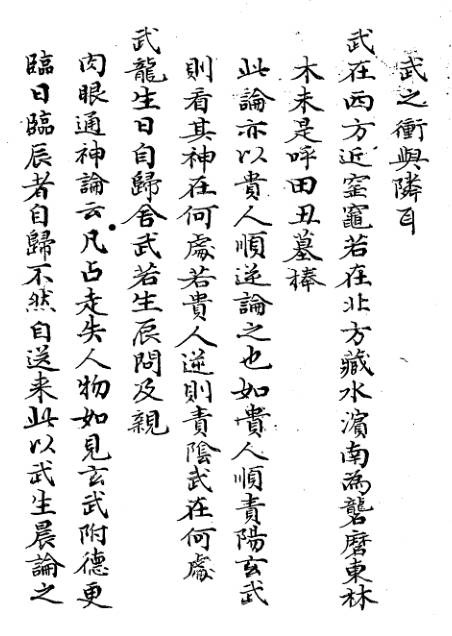 武之衝與隣耳
武在西方近窑竈若在北方藏水濱南為礱磨東林
木未是呼田丑墓棒
此論亦以貴人順逆論之也如貴人順責陽玄武
則看其神在何處若貴人逆則責陰武在何處
武龍生日自歸舍武若生辰問及親
肉眼通神論云凡占走失人物如見玄武附德更
臨日臨辰者自歸不然自送来此以武生晨論之